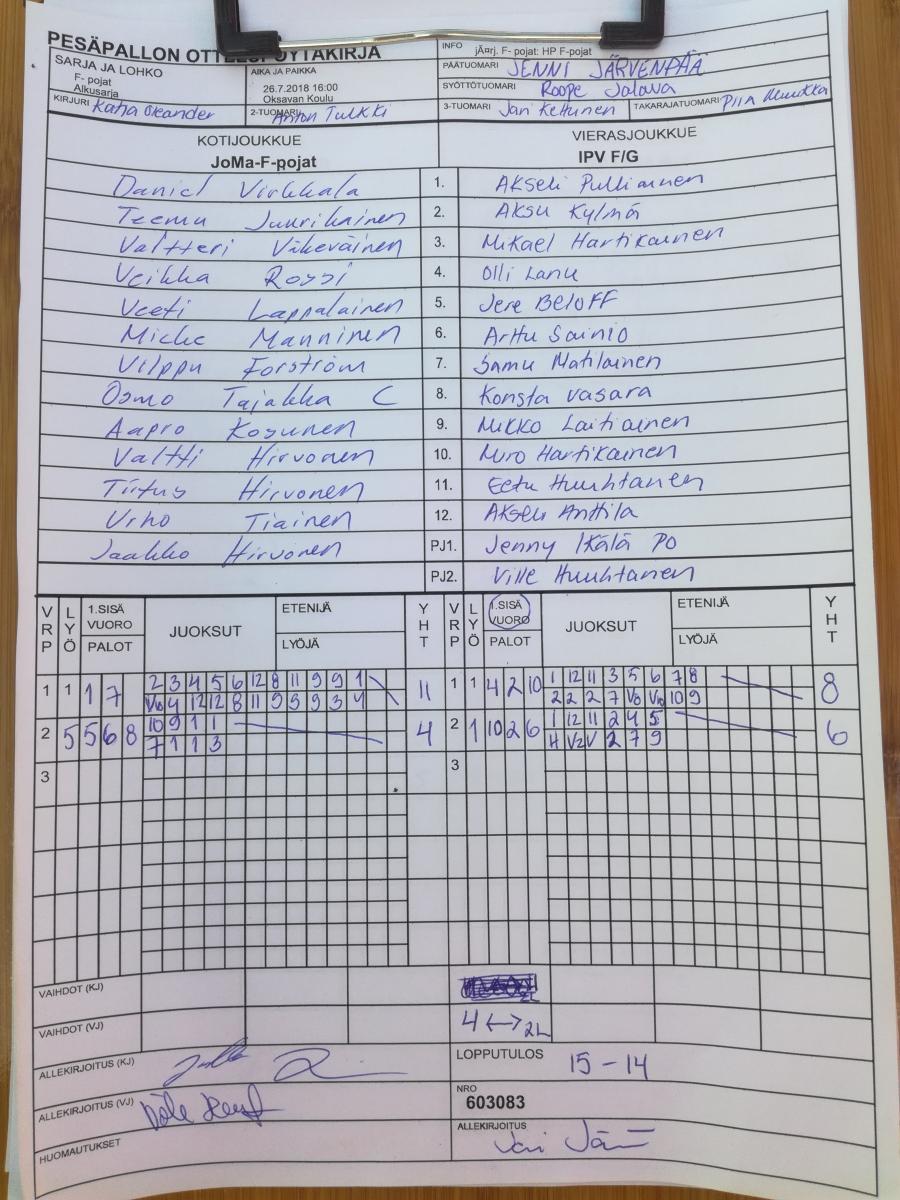 PESÄPALLON OTTELUPÖYTÄKIRJA
SARJA JA LOHKO
F- pojat
Alkusarja
AIKA JA PAIKKA
26.7.2018 16:00
Oksavan Koulu
INFO jÃ¤rj. F- pojat: HP F-pojat
PÄÄTUOMARI JENNI JÄRVENPÄÄ
SYÖTTÖTUOMARI Roope Jalava
KIRJURI Katja Okander
2-TUOMARI Anton Tulkki
3-TUOMARI Jari Kettunen
TAKARAJATUOMARI Piia Muukka
KOTIJOUKKUE VIERASJOUKKUE
JoMa-F-pojat IPV F/G
Daniel Virkkala 1. Akseli Pulliainen
Teemu Juurikainen 2. Aksu Kylmä
Valtteri Väkeväinen 3. Mikael Hartikainen
Veikka Rossi 4. Olli Lanu
Veeti Lappalainen 5. Jere Beloff
Micke Manninen 6. Arttu Sainio
Vilppu Forsström 7. Samu Matilainen
Osmo Tajakka C 8. Konsta vasara
Aapro Kosunen 9. Mikko Laitiainen
Valtti Hirvonen 10. Miro Hartikainen
Tiitus Hirvonen 11. Eetu Huuhtanen
Urho Tiainen 12. Akseli Anttila
Jaakko Hirvonen PJ1. Jenny Ikälä PO
PJ2. Ville Huuhtanen
VRP LYÖ 1.SISÄ VUORO PALOT JUOKSUT ETENIJÄ LYÖJÄ YHT VRP LYÖ 1.SISÄ VUORO PALOT JUOKSUT ETENIJÄ LYÖJÄ YHT
1 1 1 7 2 3 4 5 6 12 8 11 9 9 1 11 1 1 4 2 10 1 12 11 3 5 6 7 8 8
4 12 12 8 11 9 9 3 4 2 2 2 7 10 9
2 5 5 6 8 10 9 1 1 4 2 1 10 2 6 1 12 11 2 4 5 6
7 1 1 3 2 7 9
3 3
VAIHDOT (KJ)
VAIHDOT (VJ) 4 <-> 2L
ALLEKIRJOITUS (KJ) LOPPUTULOS 15 - 14
ALLEKIRJOITUS (VJ) NRO
603083
HUOMAUTUKSET ALLEKIRJOITUS